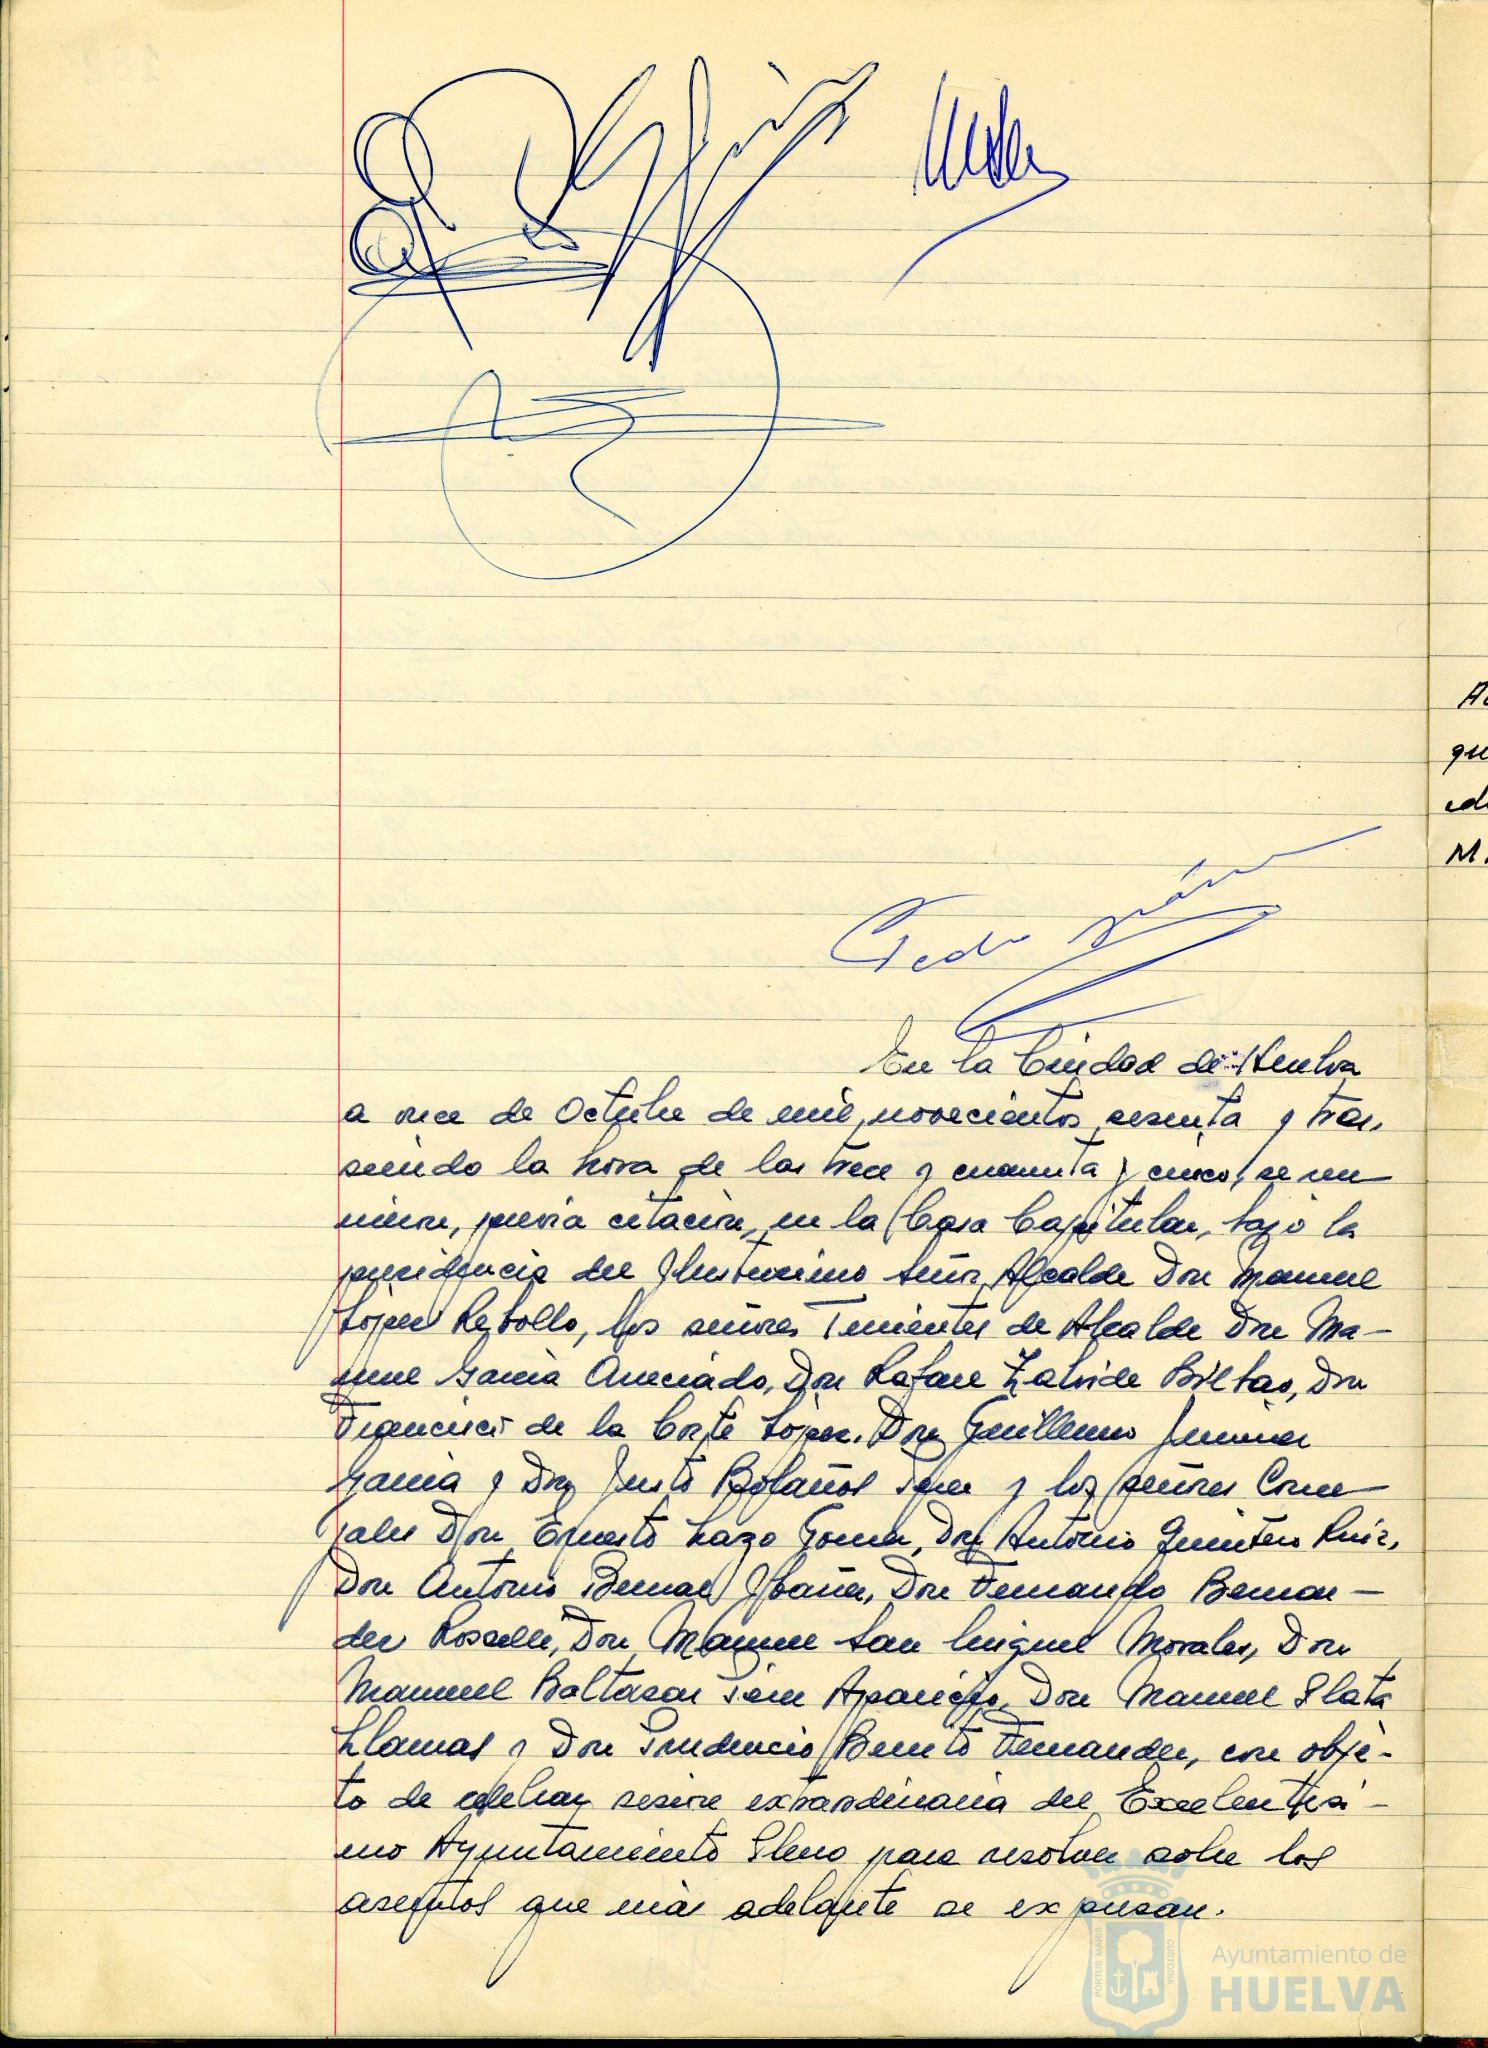 Pedro
En la Ciudad de Huelva
a once de Octubre de mil novecientos sesenta y tres,
siendo la hora de las trece y cuarenta y cinco, se reu-
nieron, previa citación, en la Casa Capitular, bajo la
presidencia del Ilustrísimo Señor Alcalde Don Manuel
López Rebollo, los señores Tenientes de Alcalde Don Ma-
nuel Garcia Don Rafael Zalvide Bilbao, Don
Francisco de la Corte López, Don Guillermo Jiménez
Garcia y Don Justo Bolaños y los señores Conce-
jales Don Ernesto Lazo Don Antonio Quintero Ruiz,
Don Antonio Bernal Ibañez, Don Fernando Bernan-
dez Don Manuel San Miguel Morales, Don
Manuel Baltasar Aparicio, Don Manuel Plata
Llamas y Don Prudencio Benito Fernandez, con obje-
to de celebrar sesión extraordinaria del Excelentísi-
mo Ayuntamiento Pleno para resolver sobre los
asuntos que más adelante se expresan.
Ac
que
M.
PORTUS MARIS
CUSTODIA
Ayuntamiento de
HUELVA